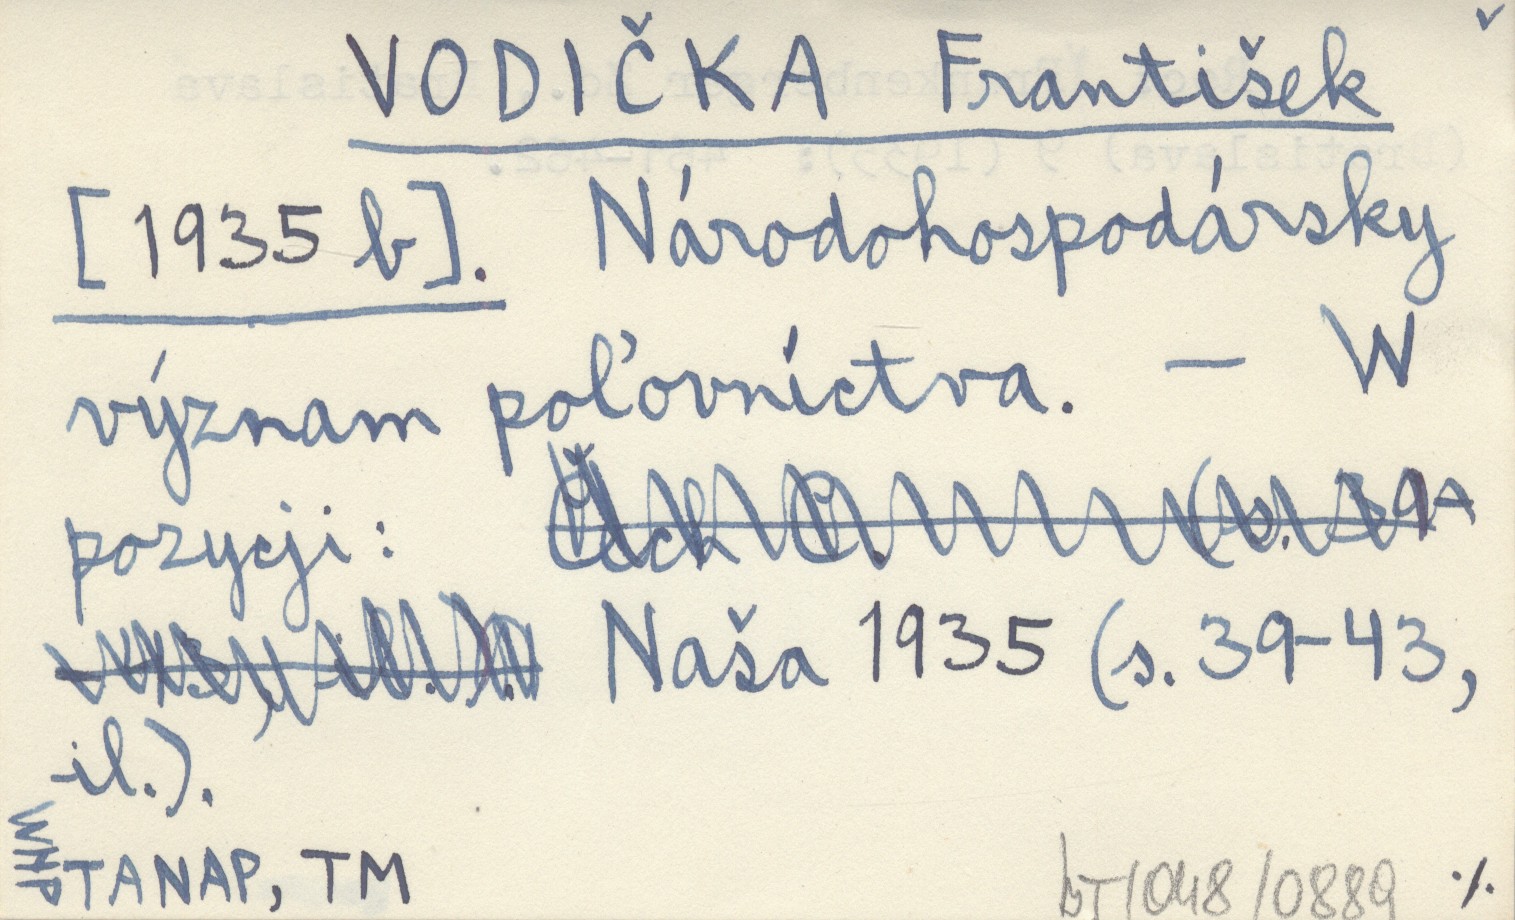 VODIČKA František
[1935 b]. Národohospodársky
význam poľovníctva. — W
pozycji:
Naša 1935 (s. 39-43,
il.).
WHP
TANAP, TM
bT/048/0889 ./.